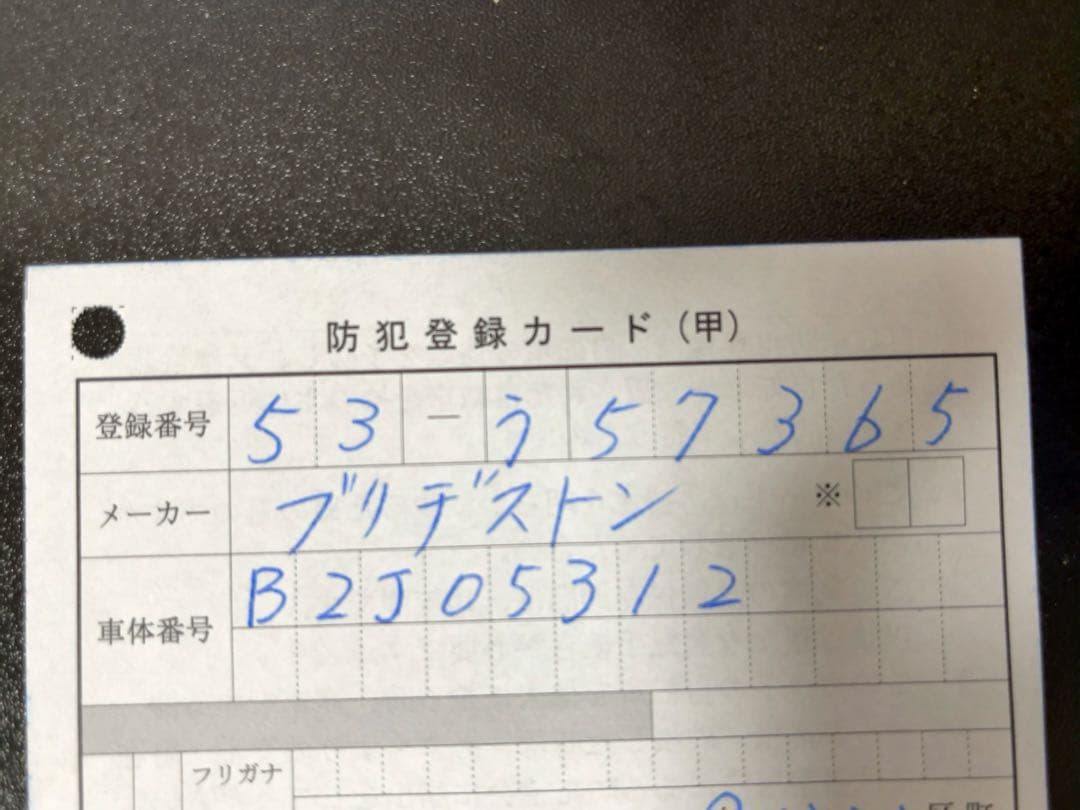 防犯登録カード（甲）
登録番号 53-う57365
メーカー ブリヂストン ※
車体番号 B2J05312
フリガナ